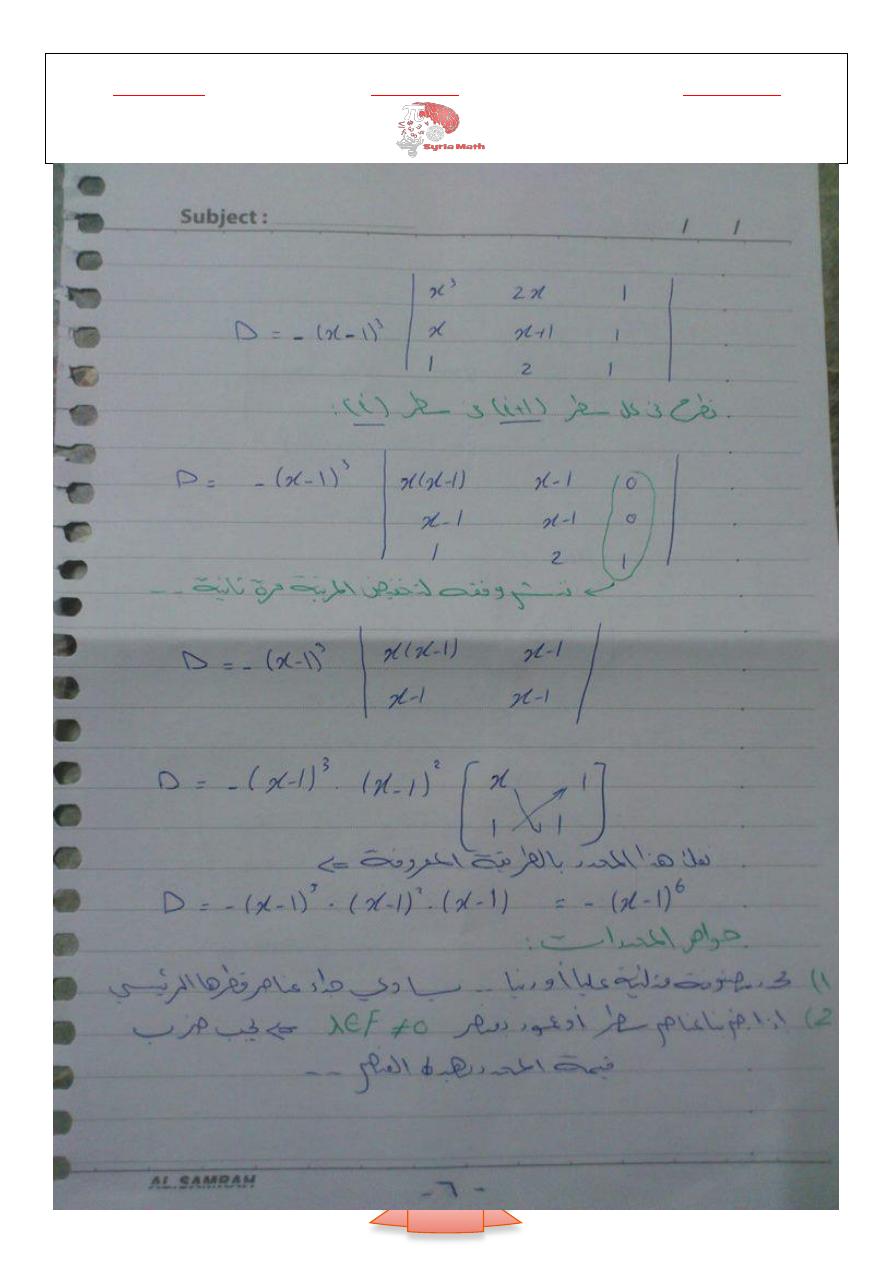 Syria Math
Subject :
/ /
x³ 2x 1
D = - (x-1)³ x x+1 1
1 2 1
نطرح من كل سطر (i+1) من سطر (i) :
D = - (x-1)³ x(x-1) x-1 0
x-1 x-1 0
1 2 1
لتخفيض المرتبة مرة ثانية --
D = - (x-1)³ x(x-1) x-1
x-1 x-1
D = - (x-1)³ . (x-1)² [ x 1
1 1 ]
هذا المحدد بالطريقة المعروفة =>
D = - (x-1)³ . (x-1)² . (x-1) = - (x-1)⁶
خواص المحددات :
1) محدد مصفوفة مثلثية عليا أو دنيا -- يساوي جداء عناصر قطرها الرئيسي
2) إذا ضربنا عناصر سطر أو عمود بعنصر λ∈F ≠0 => يجب ضرب
قيمة المحدد بهذا العنصر --
AL.SAMRAH
- ٦ -